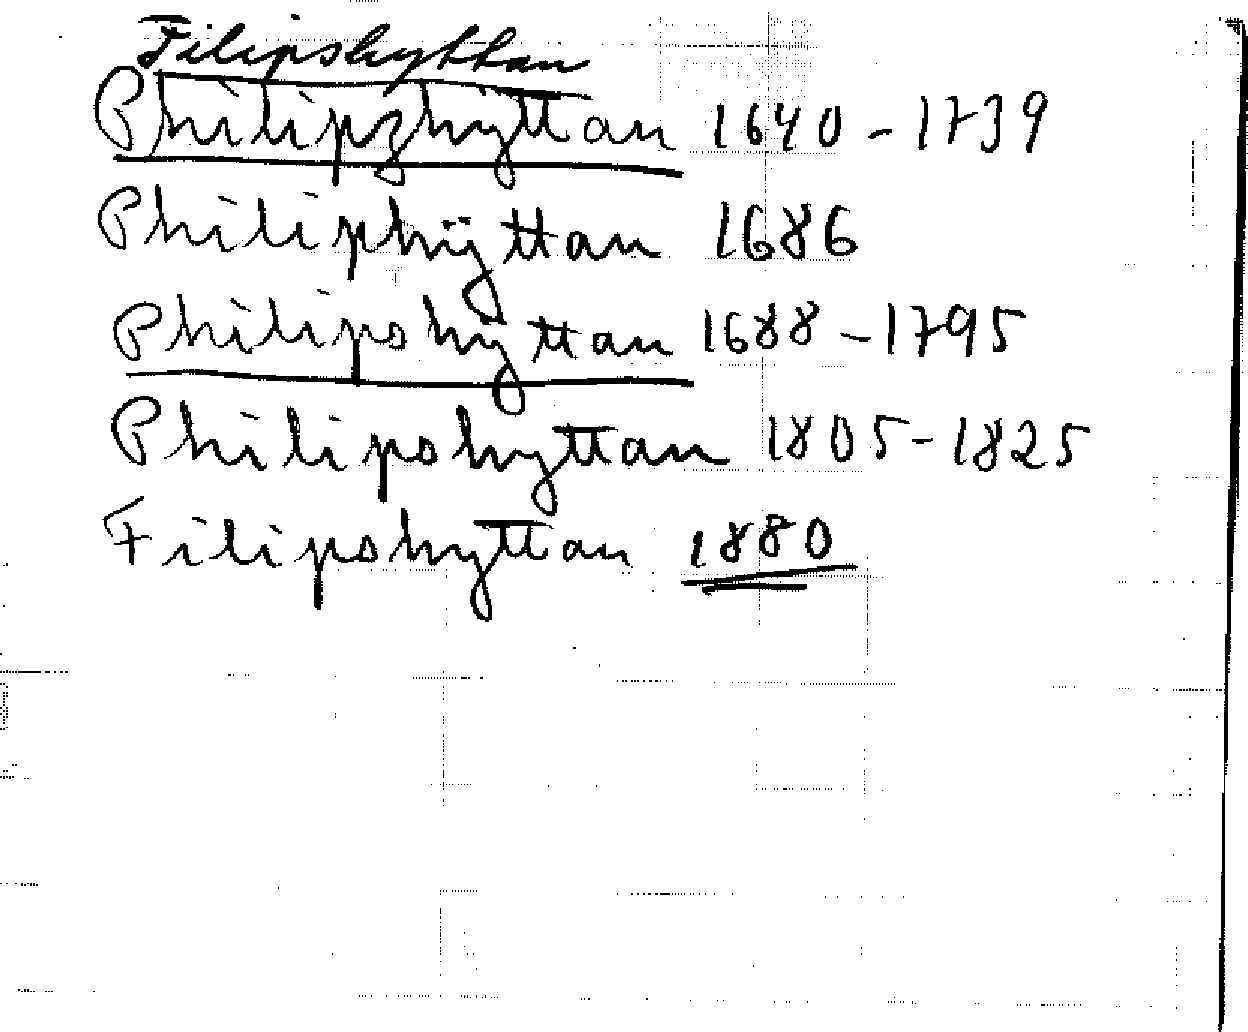 Filipshyttan
Philipzhyttan 1640-1739
Philiphÿttan 1686
Philipshyttan 1688-1795
Philipshyttan 1805-1825
Filipshyttan 1880